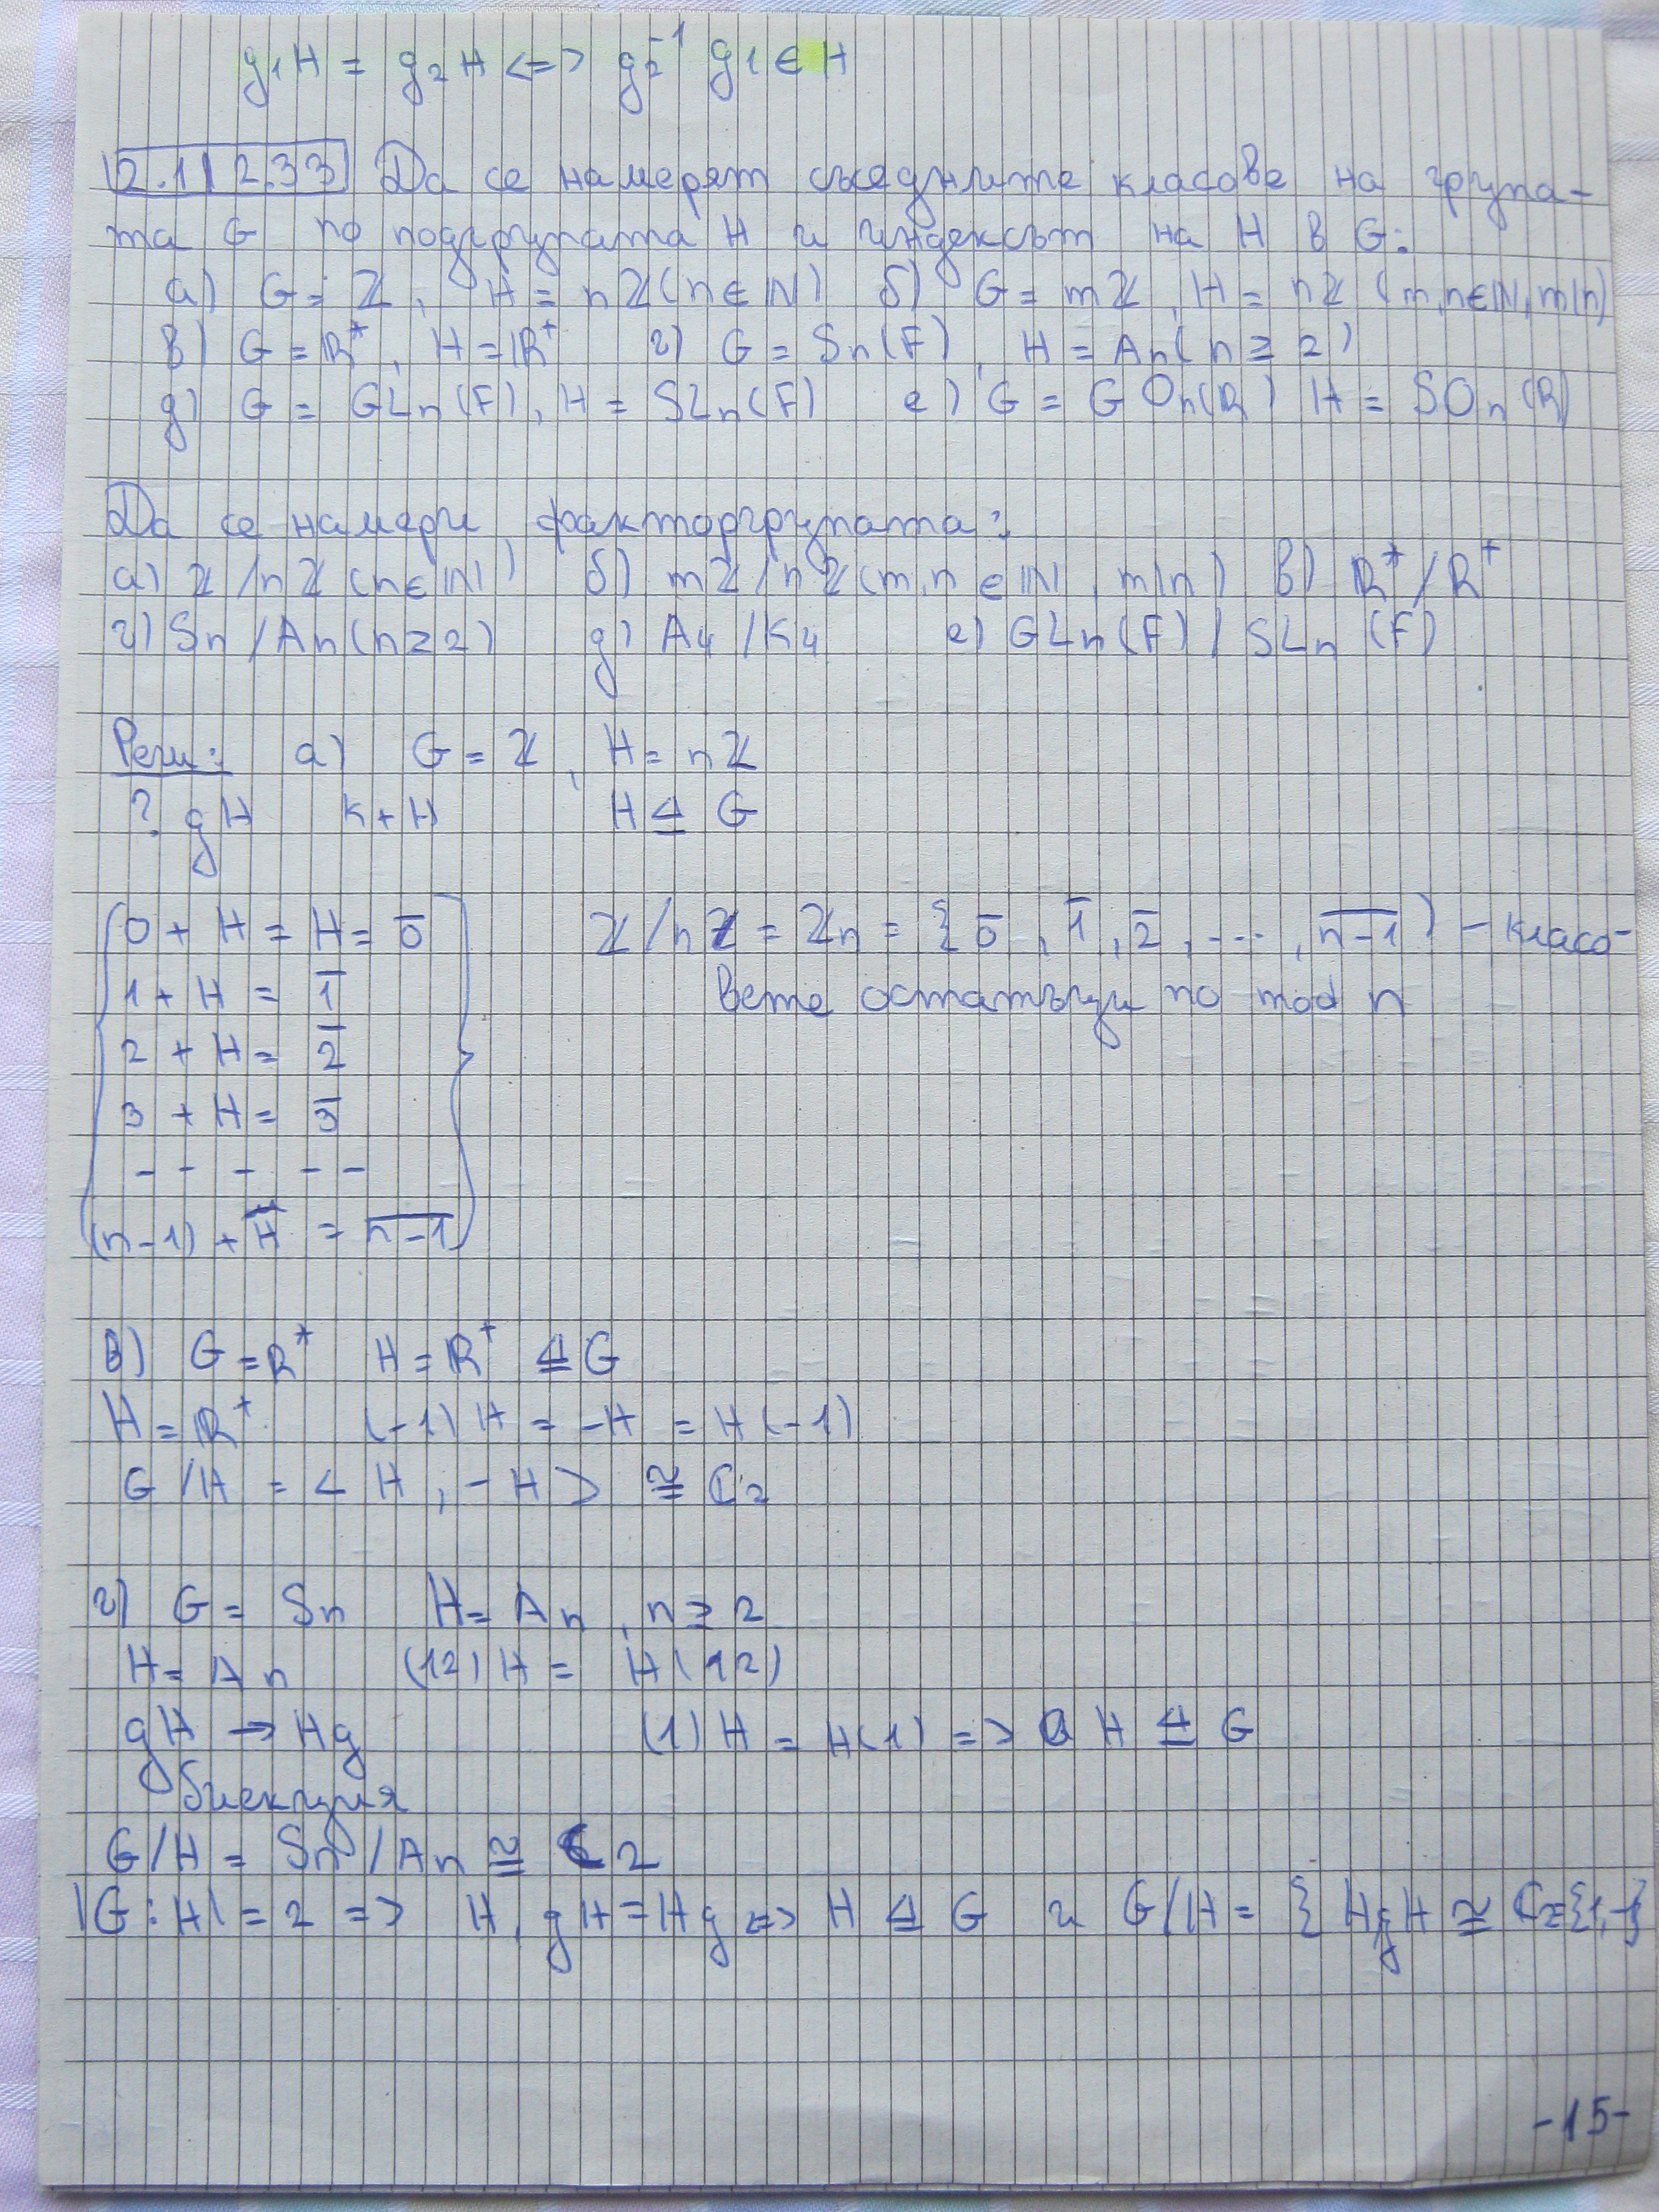 g₁H = g₂H <=> g₂⁻¹ g₁ ∈ H
2.11 2.33 Да се намерят съседните класове на група-
та G по подгрупата H и индексът на H в G:
а) G = ℤ, H = nℤ (n ∈ ℕ) б) G = mℤ, H = nℤ (m,n ∈ ℕ, m|n)
в) G = ℝ*, H = ℝ⁺ г) G = Sn(F), H = An (n ≥ 2)
д) G = GLn(F), H = SLn(F) е) G = GOn(R) H = SOn(R)
Да се намери факторгрупата:
а) ℤ/nℤ (n ∈ ℕ) б) mℤ/nℤ (m,n ∈ ℕ, m|n) в) ℝ*/ℝ⁺
г) Sn/An (n ≥ 2) д) A₄/K₄ е) GLn(F)/SLn(F)
Реш: а) G = ℤ, H = nℤ
? gH k+H H ⊴ G
0 + H = H = 0̅ ℤ/nℤ = ℤn = {0̅, 1̅, 2̅, ..., n̅-̅1̅} - класо-
1 + H = 1̅ вете остатъци по mod n
2 + H = 2̅
3 + H = 3̅
- - - - -
(n-1) + H̅ = n̅-̅1̅
в) G = ℝ* H = ℝ⁺ ⊴ G
H = ℝ⁺ (-1)H = -H = H(-1)
G/H = < H, -H > ≅ C₂
г) G = Sn H = An, n ≥ 2
H = An (12)H = H(12)
gH → Hg (1)H = H(1) => H ⊴ G
биекция
G/H = Sn/An ≅ C2
|G:H| = 2 => H, gH = Hg <=> H ⊴ G и G/H = { H gH ≅ C₂={1,-1}
-15-